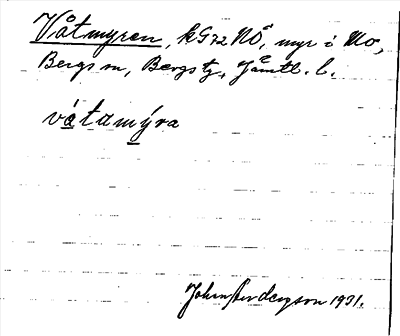 Våtmyren, kG72NÖ, myr i Mo,
Bergs sn, Bergs tg, Jämtl. l.
våtamýra
John Anderson 1931.